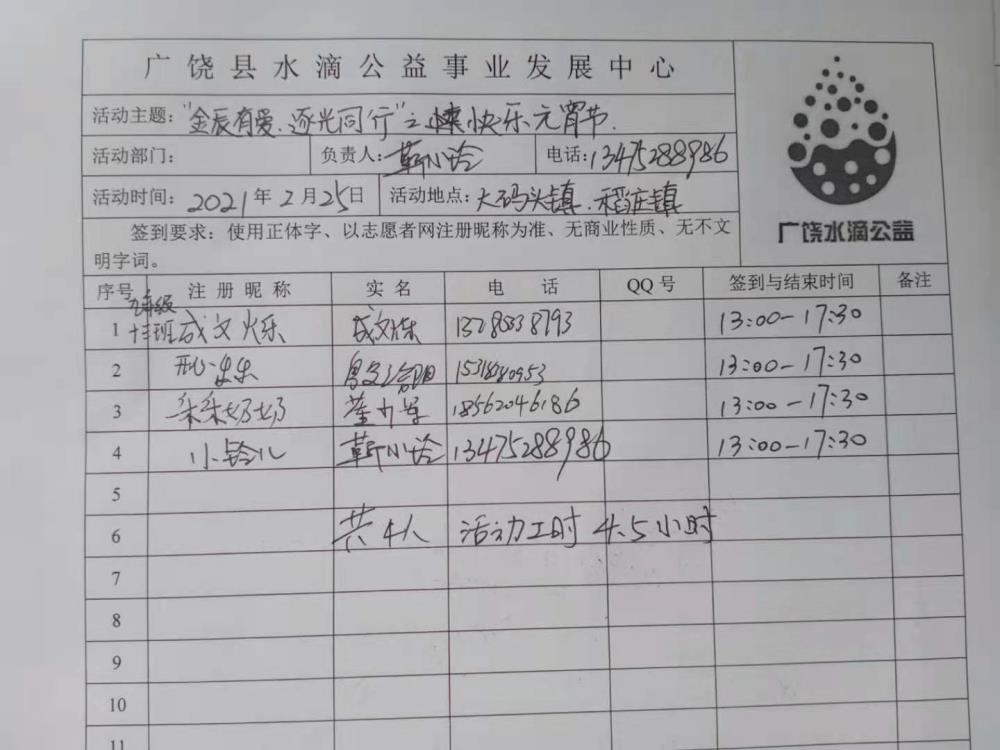 广饶县水滴公益事业发展中心
活动主题："金辰有爱、逐光同行"之 快乐元宵节.
活动部门： 负责人：靳小玲 电话：13475288986
活动时间：2021年2月25日 活动地点：大码头镇、稻庄镇
签到要求：使用正体字、以志愿者网注册昵称为准、无商业性质、无不文
明字词。
广饶水滴公益
序号 注册昵称 实名 电话 QQ号 签到与结束时间 备注
1 班成文烁 成文烁 13:00-17:30
2 13:00-17:30
3 采采奶奶 18562046186 13:00-17:30
4 小铃儿 靳小玲 13475288986 13:00-17:30
5
6 共4人 活动工时 4.5小时
7
8
9
10
11